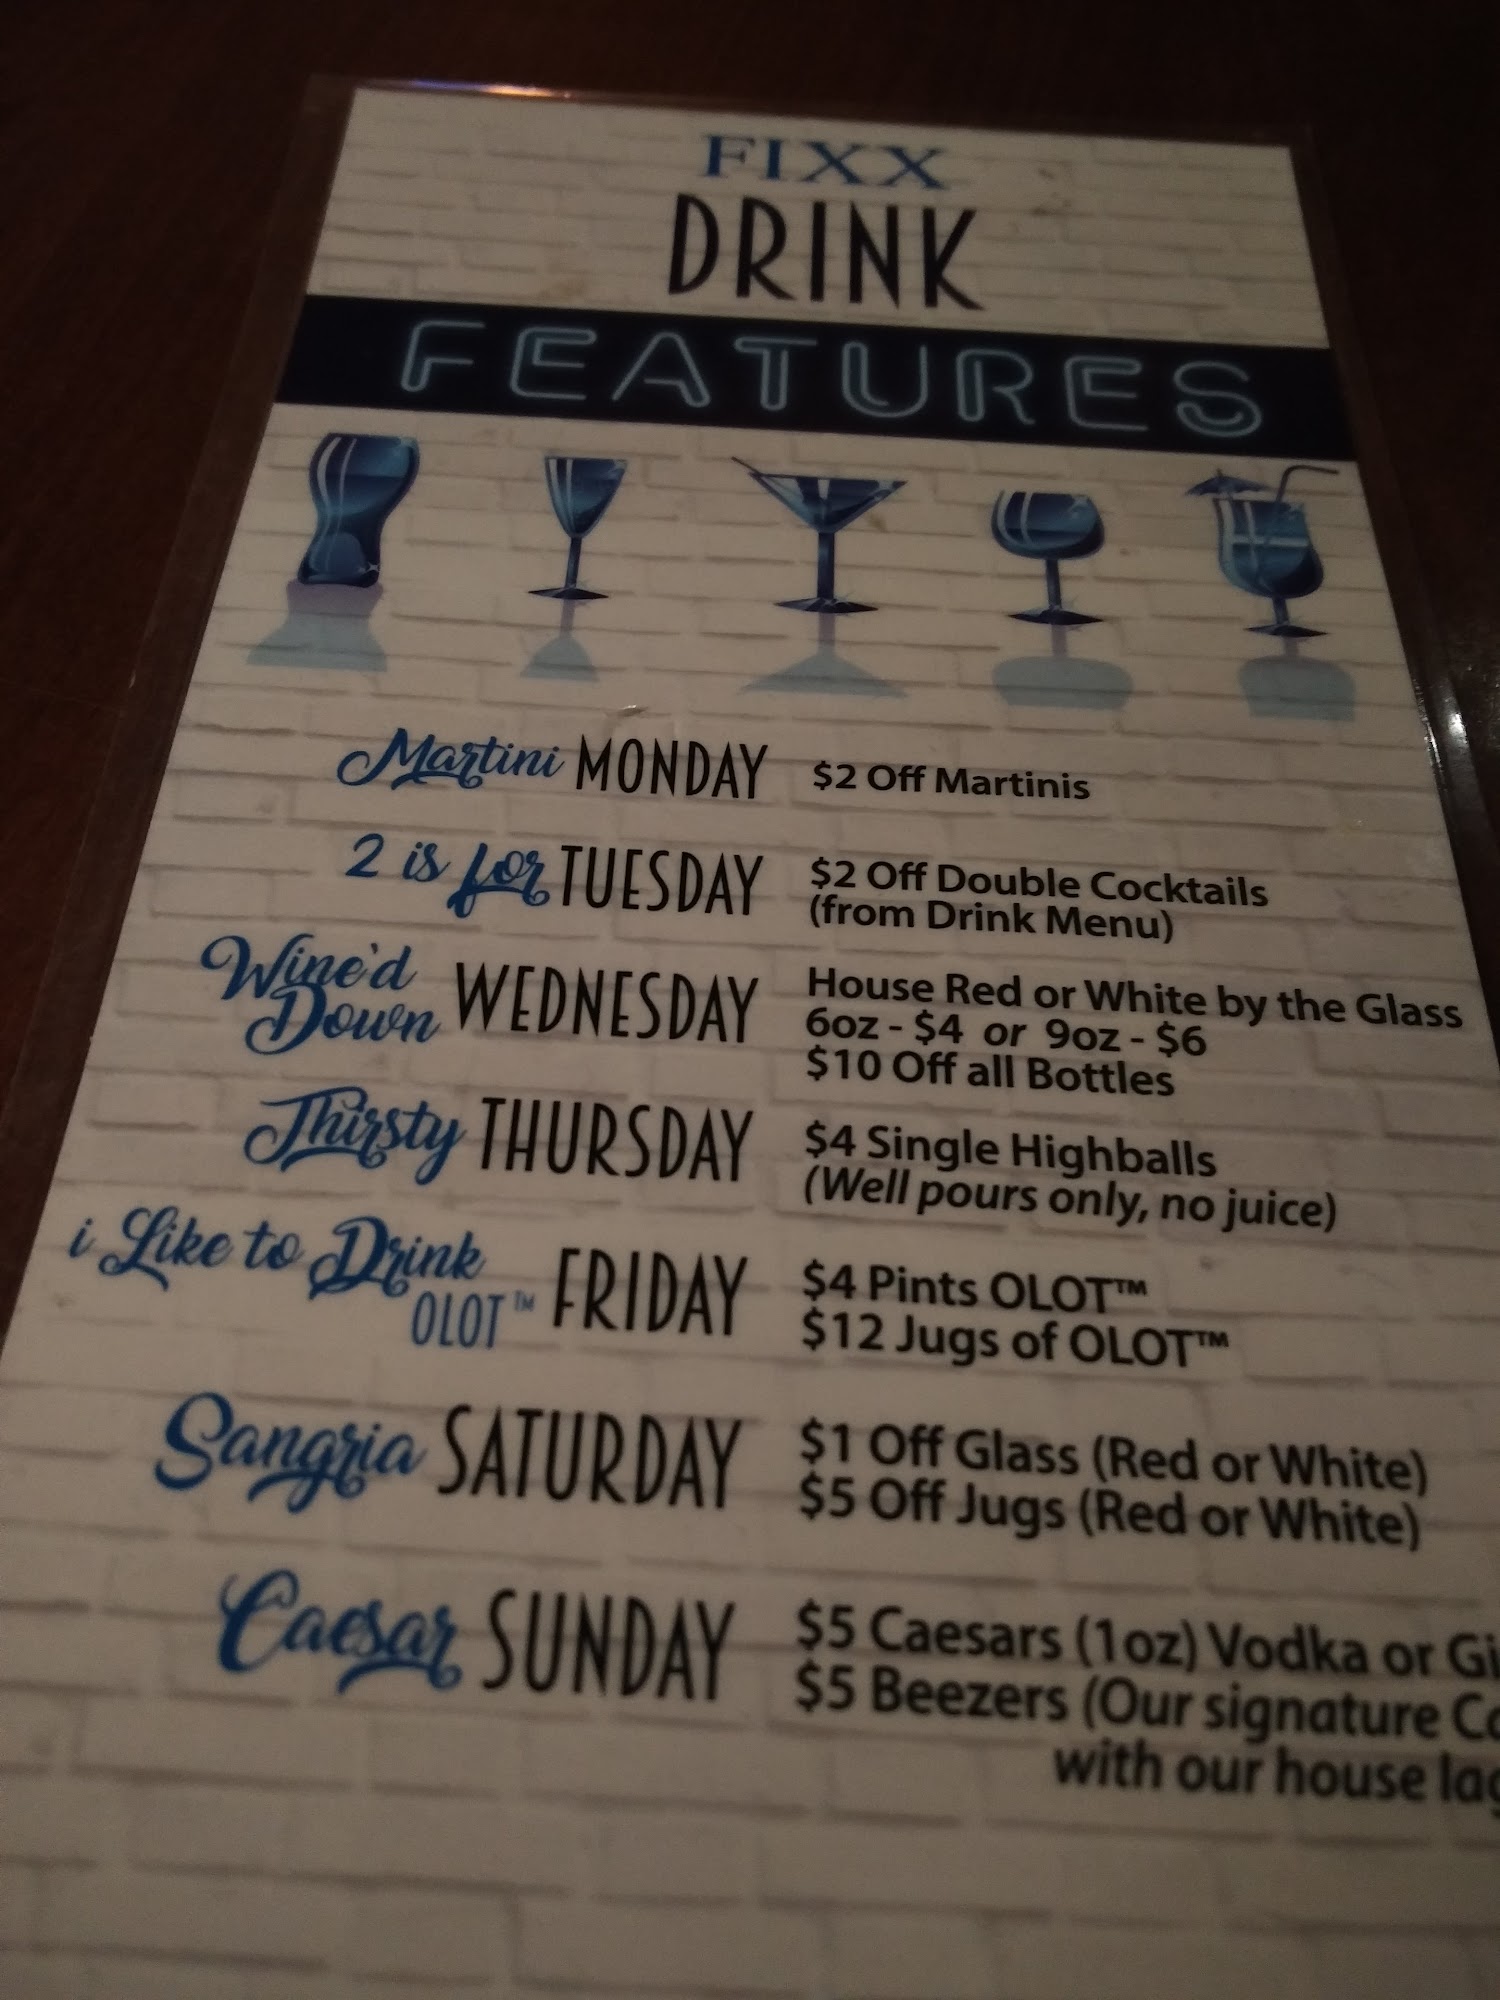 FIXX
DRINK
FEATURES
Martini MONDAY $2 Off Martinis
2 is for TUESDAY $2 Off Double Cocktails
(from Drink Menu)
Wine'd Down WEDNESDAY House Red or White by the Glass
6oz - $4 or 9oz - $6
$10 Off all Bottles
Thirsty THURSDAY $4 Single Highballs
(Well pours only, no juice)
i Like to Drink OLOT™ FRIDAY $4 Pints OLOT™
$12 Jugs of OLOT™
Sangria SATURDAY $1 Off Glass (Red or White)
$5 Off Jugs (Red or White)
Caesar SUNDAY $5 Caesars (1oz) Vodka or
$5 Beezers (Our signature
with our house